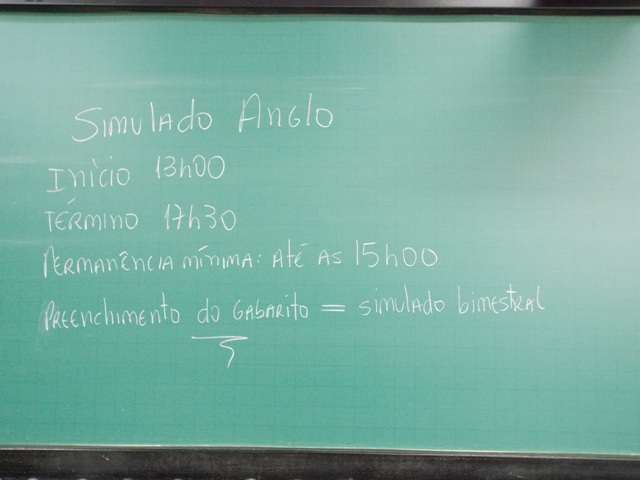 Simulado Anglo
Início 13h00
Término 17h30
Permanência mínima: até as 15h00
Preenchimento do gabarito = simulado bimestral